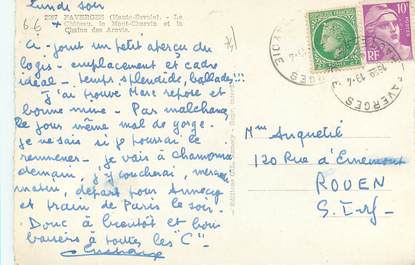 Lundi soir
2287 FAVERGES (Haute-Savoie). - Le
Château, le Mont-Charvin et la
Chaîne des Aravis.
6.6
Ci-joint un petit aperçu du
logis - emplacement et cadre
idéal - temps splendide, ballade!!!
J'ai trouvé Marc reposé et
bonne mine - Par malchance
le jour même mal de gorge.
je ne sais si je pourrai le
remmener - je vais à chamonix
demain, j'y coucherai, mercredi
matin, départ pour Annecy
et train de Paris le soir.
Donc à bientôt et bons
baisers à toutes les "C" -
Mme Anquetil
120 Rue d'Ernemont
ROUEN
S. Inf
10F
FAVERGES
SAVOIE